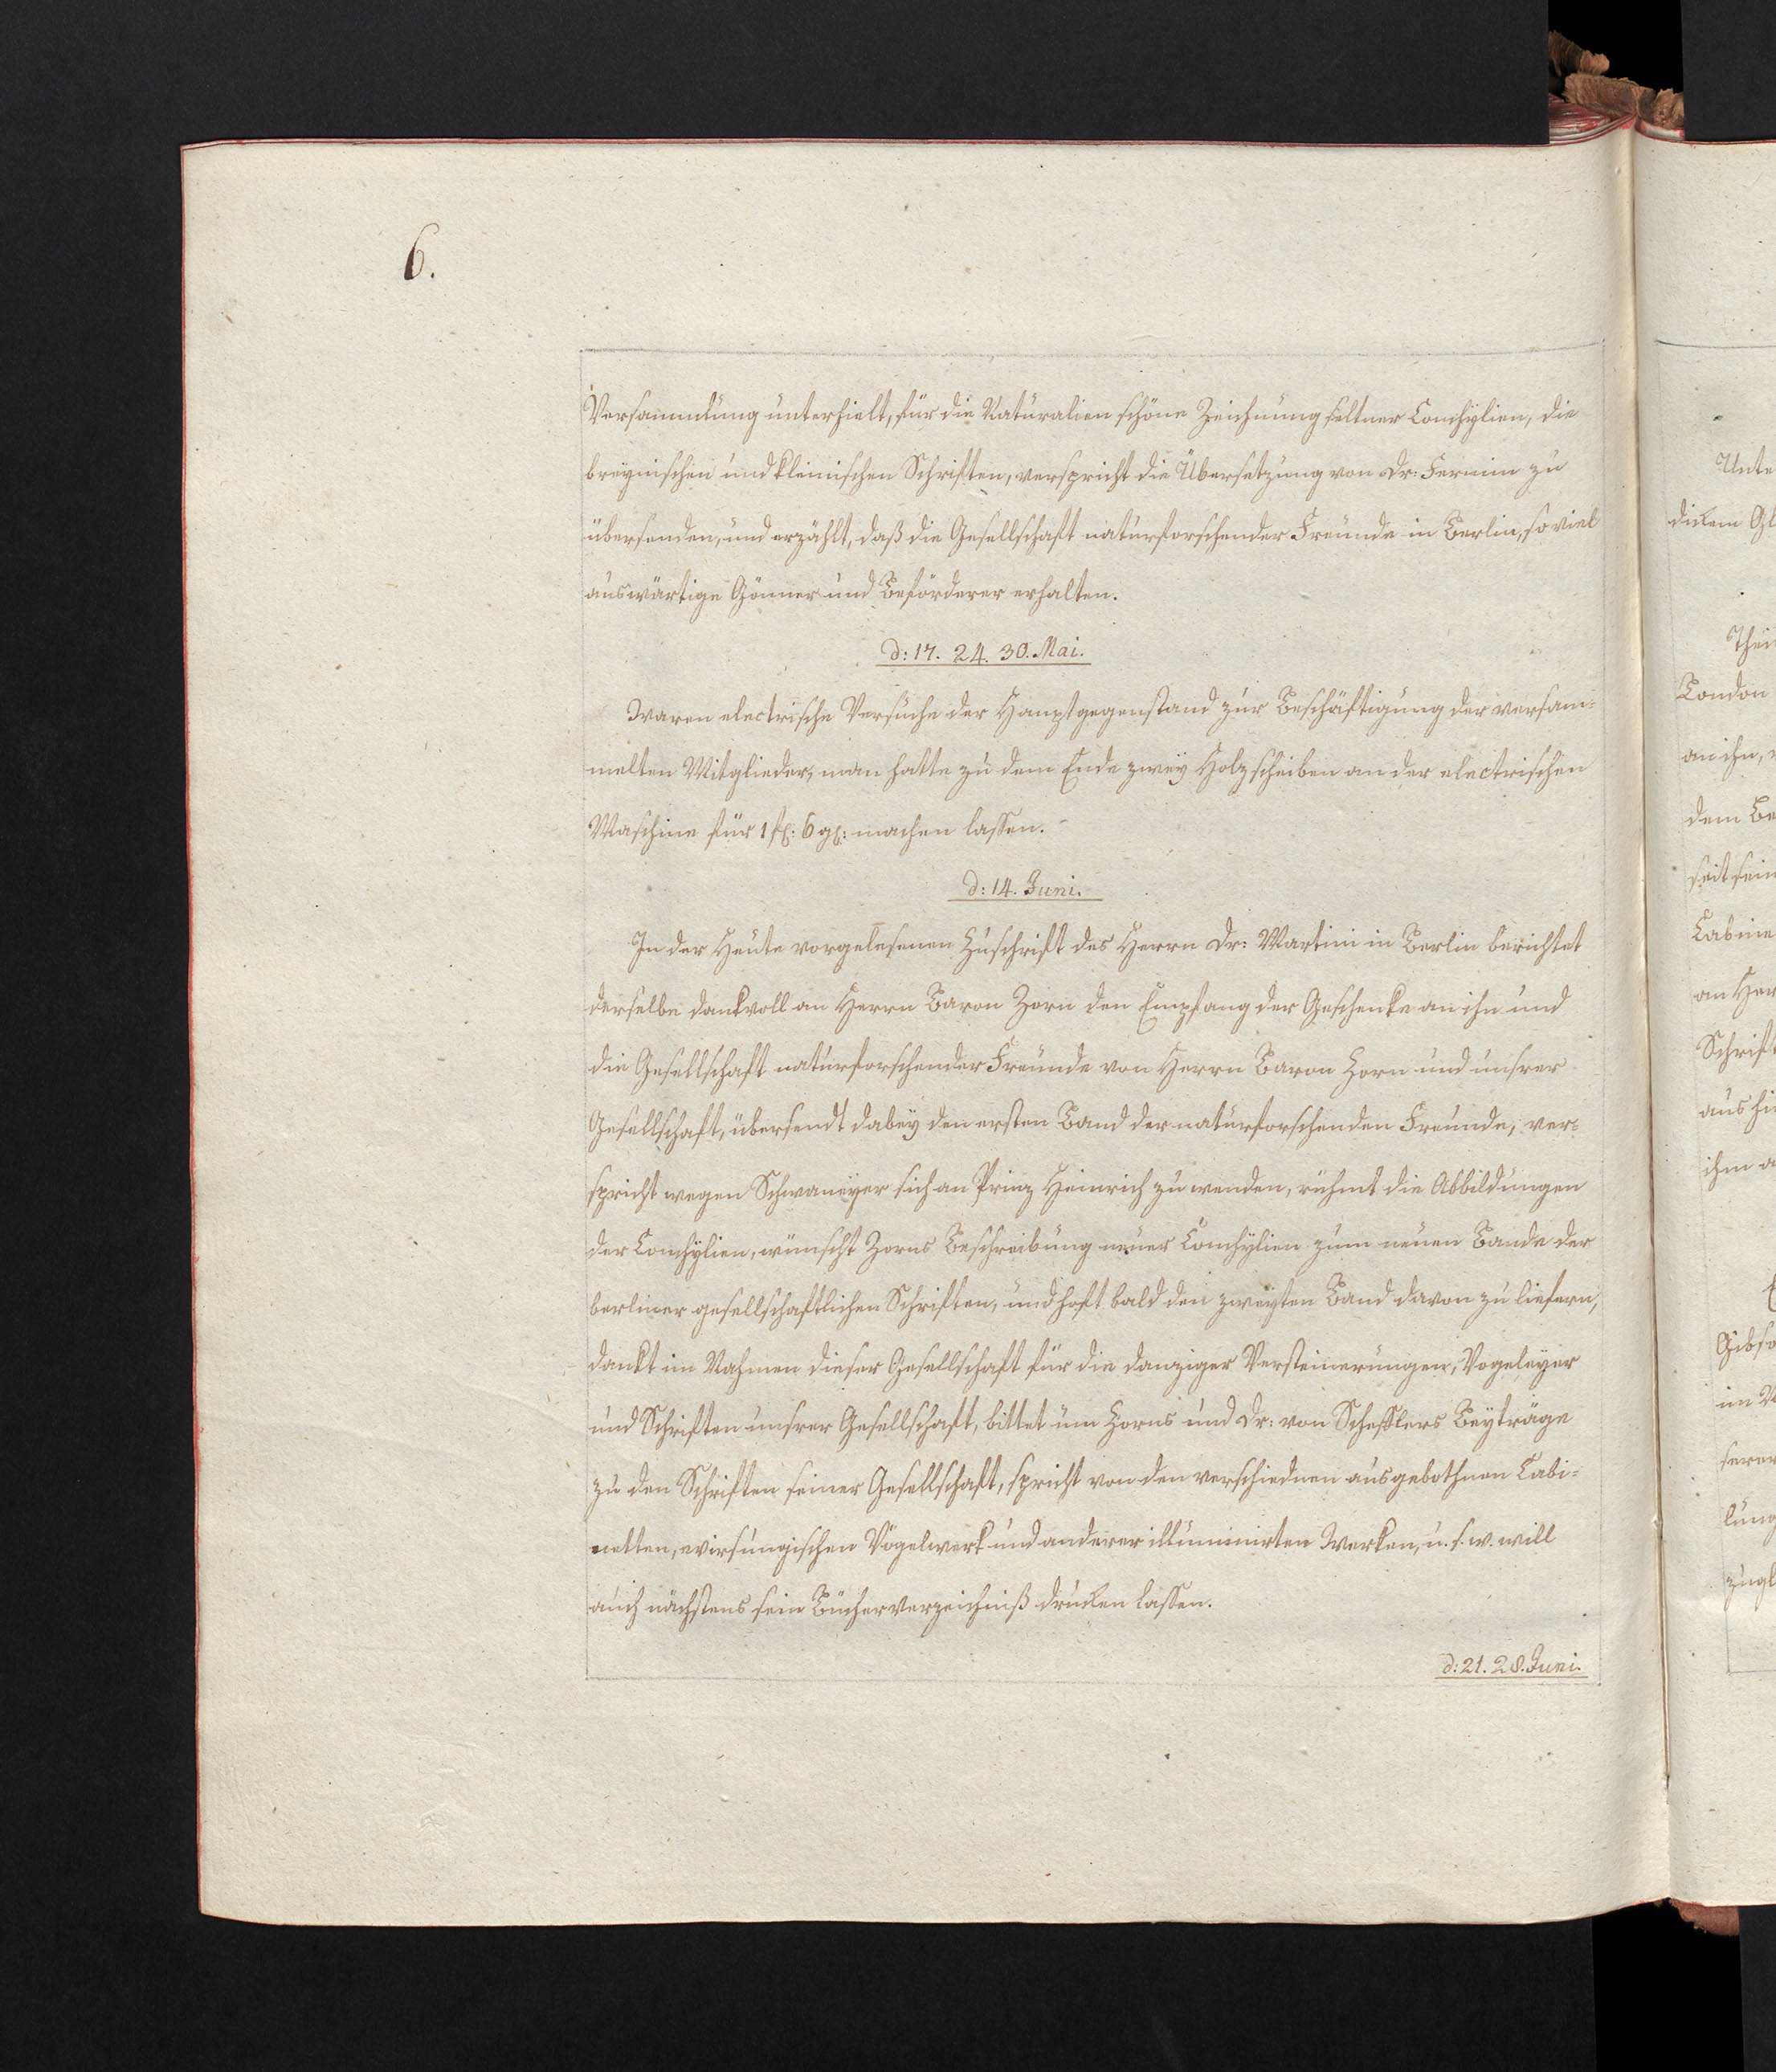 6.
Versammlung unterhielt, für die Naturalien schöne Zeichnung seltner Conchylien, die
breynischen und kleinischen Schriften, verspricht die Übersetzung von Dr: Fermin zu
übersenden, und erzählt, daß die Gesellschaft naturforschender Freunde in Berlin, so viel
auswärtige Gönner und Beförderer erhalten.
d: 17. 24. 30. Mai.
Waren electrische Versuche der Hauptgegenstand zur Beschäftigung der versam-
melten Mitglieder, man hatte zu dem Ende zwey Holzscheiben an der electrischen
Maschine für 1 fl: 6 gl: machen lassen.
d: 14. Juni.
In der Heute vorgelesenen Zuschrift des Herrn Dr: Martini in Berlin berichtet
derselbe dankvoll an Herrn Baron Zorn den Empfang der Geschenke an ihn und
die Gesellschaft naturforschender Freunde von Herrn Baron Zorn und unsrer
Gesellschaft, übersendt dabey den ersten Band der naturforschenden Freunde, ver-
spricht wegen Schwaneyer sich an Prinz Heinrich zu wenden, rühmt die Abbildungen
der Conchylien, wünscht Zorns Beschreibung neuer Conchylien zum neuen Bande der
berliner gesellschaftlichen Schriften, und hoft bald den zweyten Band davon zu liefern,
dankt im Nahmen dieser Gesellschaft für die danziger Versteinerungen, Vogeleyer
und Schriften unsrer Gesellschaft, bittet um Zorns und Dr: von Schefflers Beyträge
zu den Schriften seiner Gesellschaft, spricht von den verschiednen ausgebothnen Cabi-
netten, wirsungischen Vögelwerk und anderer illuminirten Werken, u. s. w. will
auch nächstens sein Bücherverzeichniß drucken lassen.
d: 21. 28. Juni.